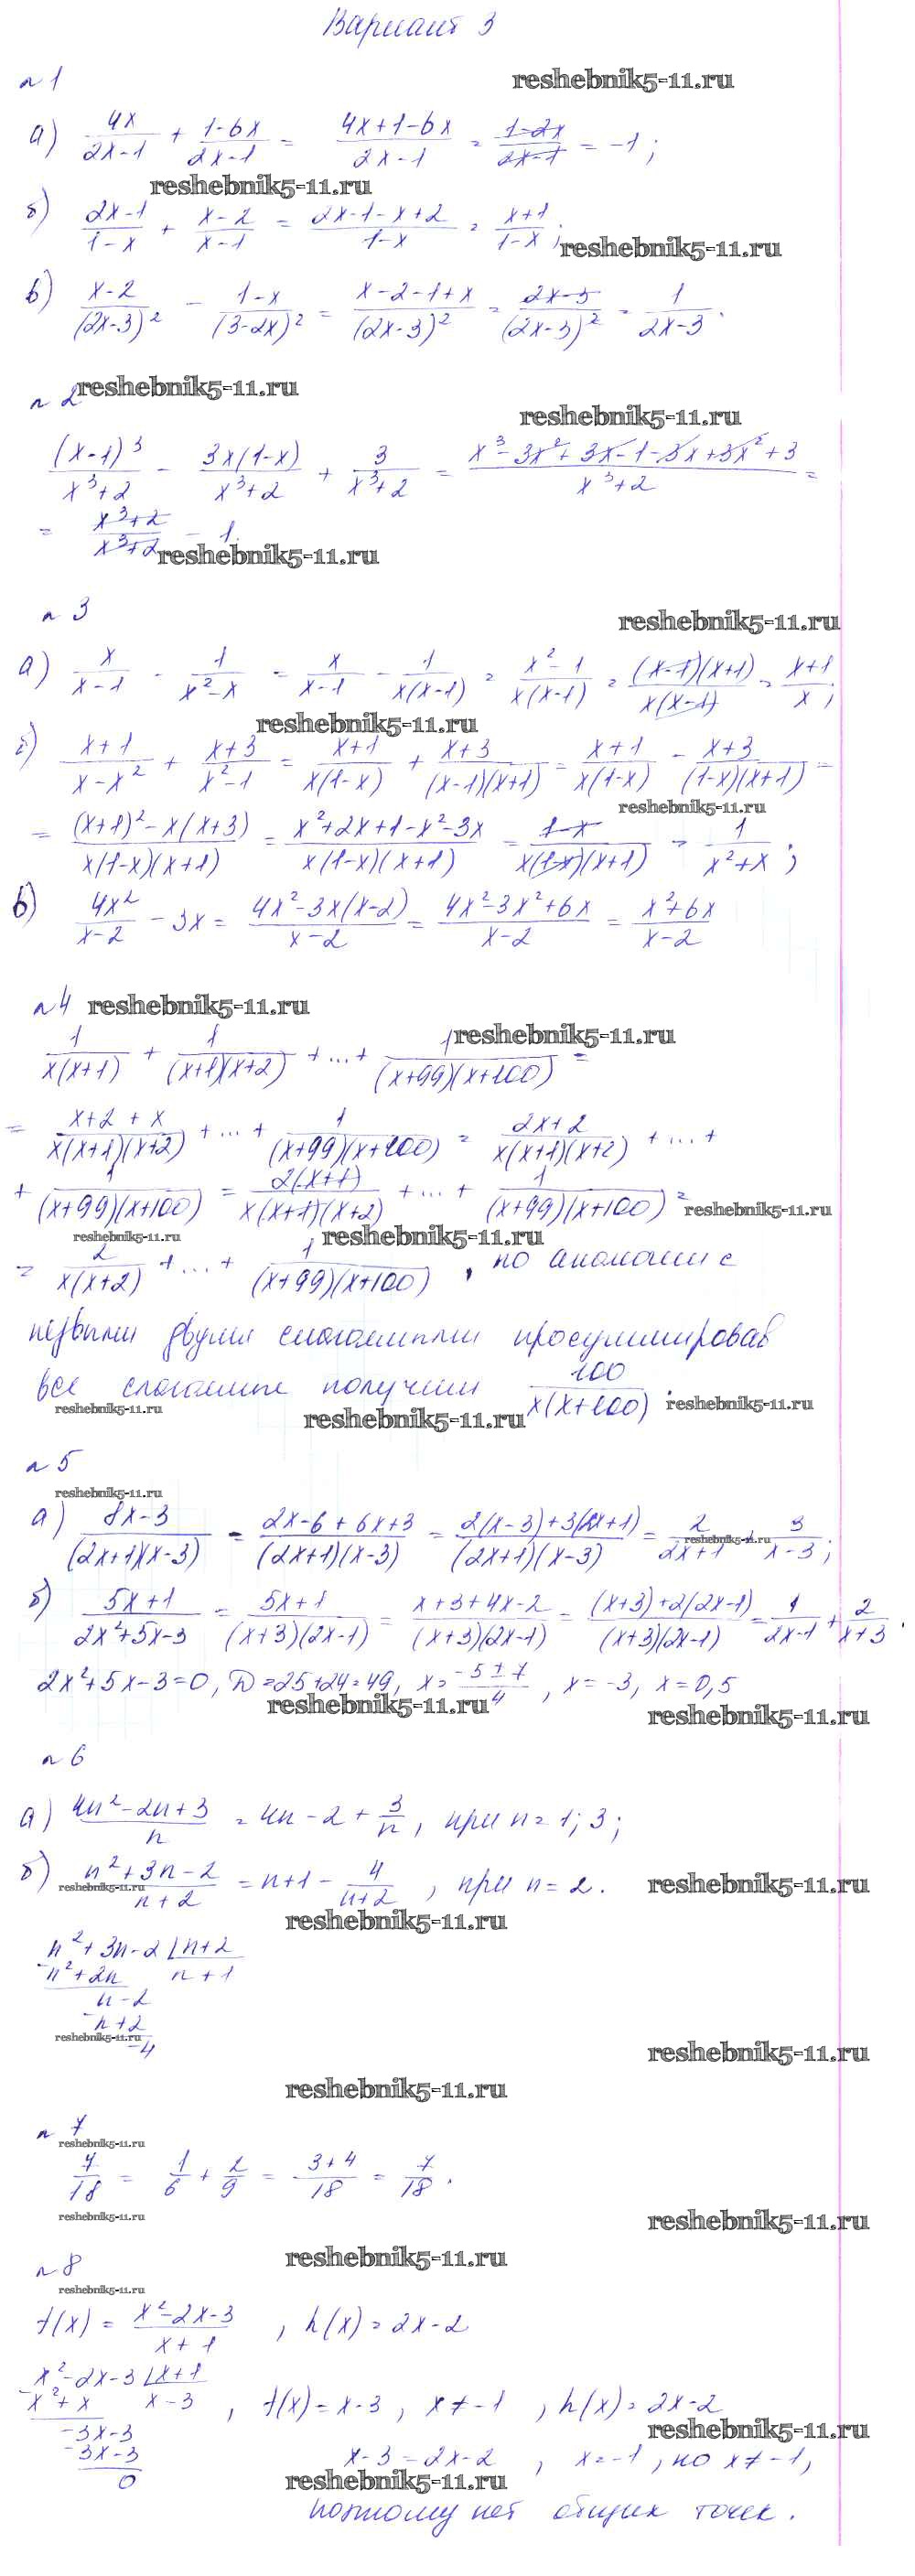 Вариант 3
n 1
reshebnik5-11.ru
а) 4x/(2x-1) + (1-6x)/(2x-1) = (4x+1-6x)/(2x-1) = (1-2x)/(2x-1) = -1;
reshebnik5-11.ru
б) (2x-1)/(1-x) + (x-2)/(x-1) = (2x-1-x+2)/(1-x) = (x+1)/(1-x);
reshebnik5-11.ru
в) (x-2)/(2x-3)² - (1-x)/(3-2x)² = (x-2-1+x)/(2x-3)² = (2x-3)/(2x-3)² = 1/(2x-3).
n 2
reshebnik5-11.ru
reshebnik5-11.ru
(x-1)³/(x³+2) - 3x(1-x)/(x³+2) + 3/(x³+2) = (x³-3x²+3x-1-3x+3x²+3)/(x³+2) =
= (x³+2)/(x³+2) = 1.
reshebnik5-11.ru
n 3
reshebnik5-11.ru
а) x/(x-1) - 1/(x²-x) = x/(x-1) - 1/(x(x-1)) = (x²-1)/(x(x-1)) = (x-1)(x+1)/(x(x-1)) = (x+1)/x;
reshebnik5-11.ru
б) (x+1)/(x-x²) + (x+3)/(x²-1) = (x+1)/(x(1-x)) + (x+3)/((x-1)(x+1)) = (x+1)/(x(1-x)) - (x+3)/((1-x)(x+1)) =
reshebnik5-11.ru
= ((x+1)²-x(x+3))/(x(1-x)(x+1)) = (x²+2x+1-x²-3x)/(x(1-x)(x+1)) = (1-x)/(x(1-x)(x+1)) = 1/(x²+x);
в) 4x²/(x-2) - 3x = (4x²-3x(x-2))/(x-2) = (4x²-3x²+6x)/(x-2) = (x²+6x)/(x-2)
n 4
reshebnik5-11.ru
reshebnik5-11.ru
1/(x(x+1)) + 1/((x+1)(x+2)) + ... + 1/((x+99)(x+100)) =
= (x+2+x)/(x(x+1)(x+2)) + ... + 1/((x+99)(x+100)) = (2x+2)/(x(x+1)(x+2)) + ... +
+ 1/((x+99)(x+100)) = 2(x+1)/(x(x+1)(x+2)) + ... + 1/((x+99)(x+100)) =
reshebnik5-11.ru
reshebnik5-11.ru
reshebnik5-11.ru
= 2/(x(x+2)) + ... + 1/((x+99)(x+100)), по аналогии с
первыми двумя слагаемыми просуммировав
все слагаемые получим 100/(x(x+100)).
reshebnik5-11.ru
reshebnik5-11.ru
reshebnik5-11.ru
n 5
reshebnik5-11.ru
а) (8x-3)/((2x+1)(x-3)) = (2x-6+6x+3)/((2x+1)(x-3)) = (2(x-3)+3(2x+1))/((2x+1)(x-3)) = 2/(2x+1) + 3/(x-3);
reshebnik5-11.ru
б) (5x+1)/(2x²+5x-3) = (5x+1)/((x+3)(2x-1)) = (x+3+4x-2)/((x+3)(2x-1)) = ((x+3)+2(2x-1))/((x+3)(2x-1)) = 1/(2x-1) + 2/(x+3).
2x²+5x-3=0, D=25+24=49, x=(-5±7)/4, x=-3, x=0,5
reshebnik5-11.ru
reshebnik5-11.ru
n 6
а) (4n²-2n+3)/n = 4n-2+3/n, при n=1; 3;
б) (n²+3n-2)/(n+2) = n+1-4/(n+2), при n=2.
reshebnik5-11.ru
reshebnik5-11.ru
reshebnik5-11.ru
n²+3n-2 | n+2
n²+2n   n+1
n-2
n+2
-4
reshebnik5-11.ru
reshebnik5-11.ru
reshebnik5-11.ru
n 7
reshebnik5-11.ru
7/18 = 1/6 + 2/9 = (3+4)/18 = 7/18.
reshebnik5-11.ru
reshebnik5-11.ru
n 8
reshebnik5-11.ru
reshebnik5-11.ru
f(x) = (x²-2x-3)/(x+1), h(x) = 2x-2
x²-2x-3 | x+1
x²+x   x-3, f(x)=x-3, x≠-1, h(x)=2x-2
-3x-3
-3x-3
0
reshebnik5-11.ru
x-3=2x-2, x=-1, но x≠-1,
reshebnik5-11.ru
поэтому нет общих точек.